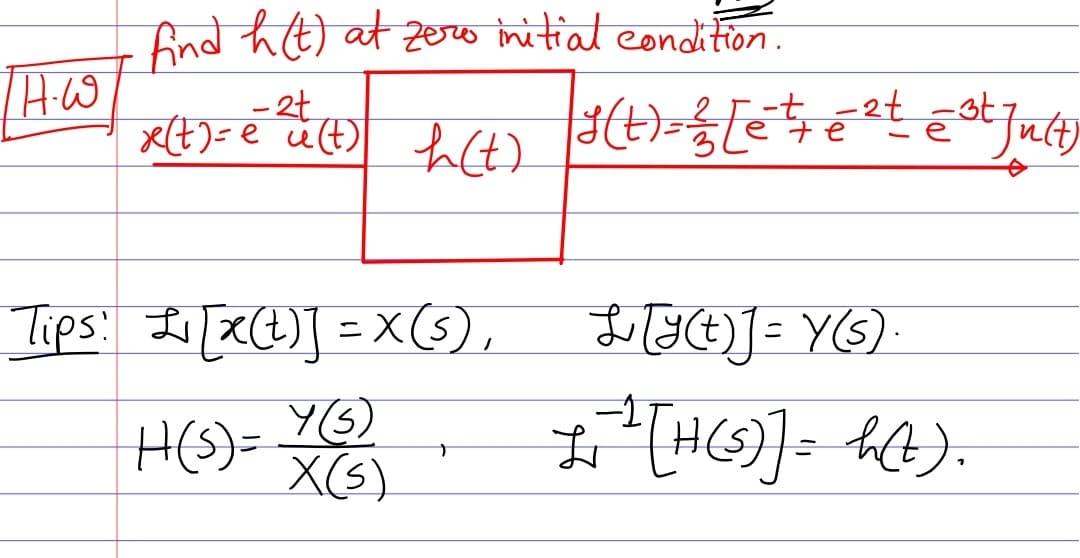 find h(t) at zero initial condition.
H.W
x(t)=e^{-2t}u(t)
h(t)
y(t)=2/3[e^{-t}+e^{-2t}-e^{-3t}]u(t)
Tips: L[x(t)] = X(s), L[y(t)] = Y(s).
H(s)= Y(s)/X(s) , L^{-1}[H(s)]= h(t).